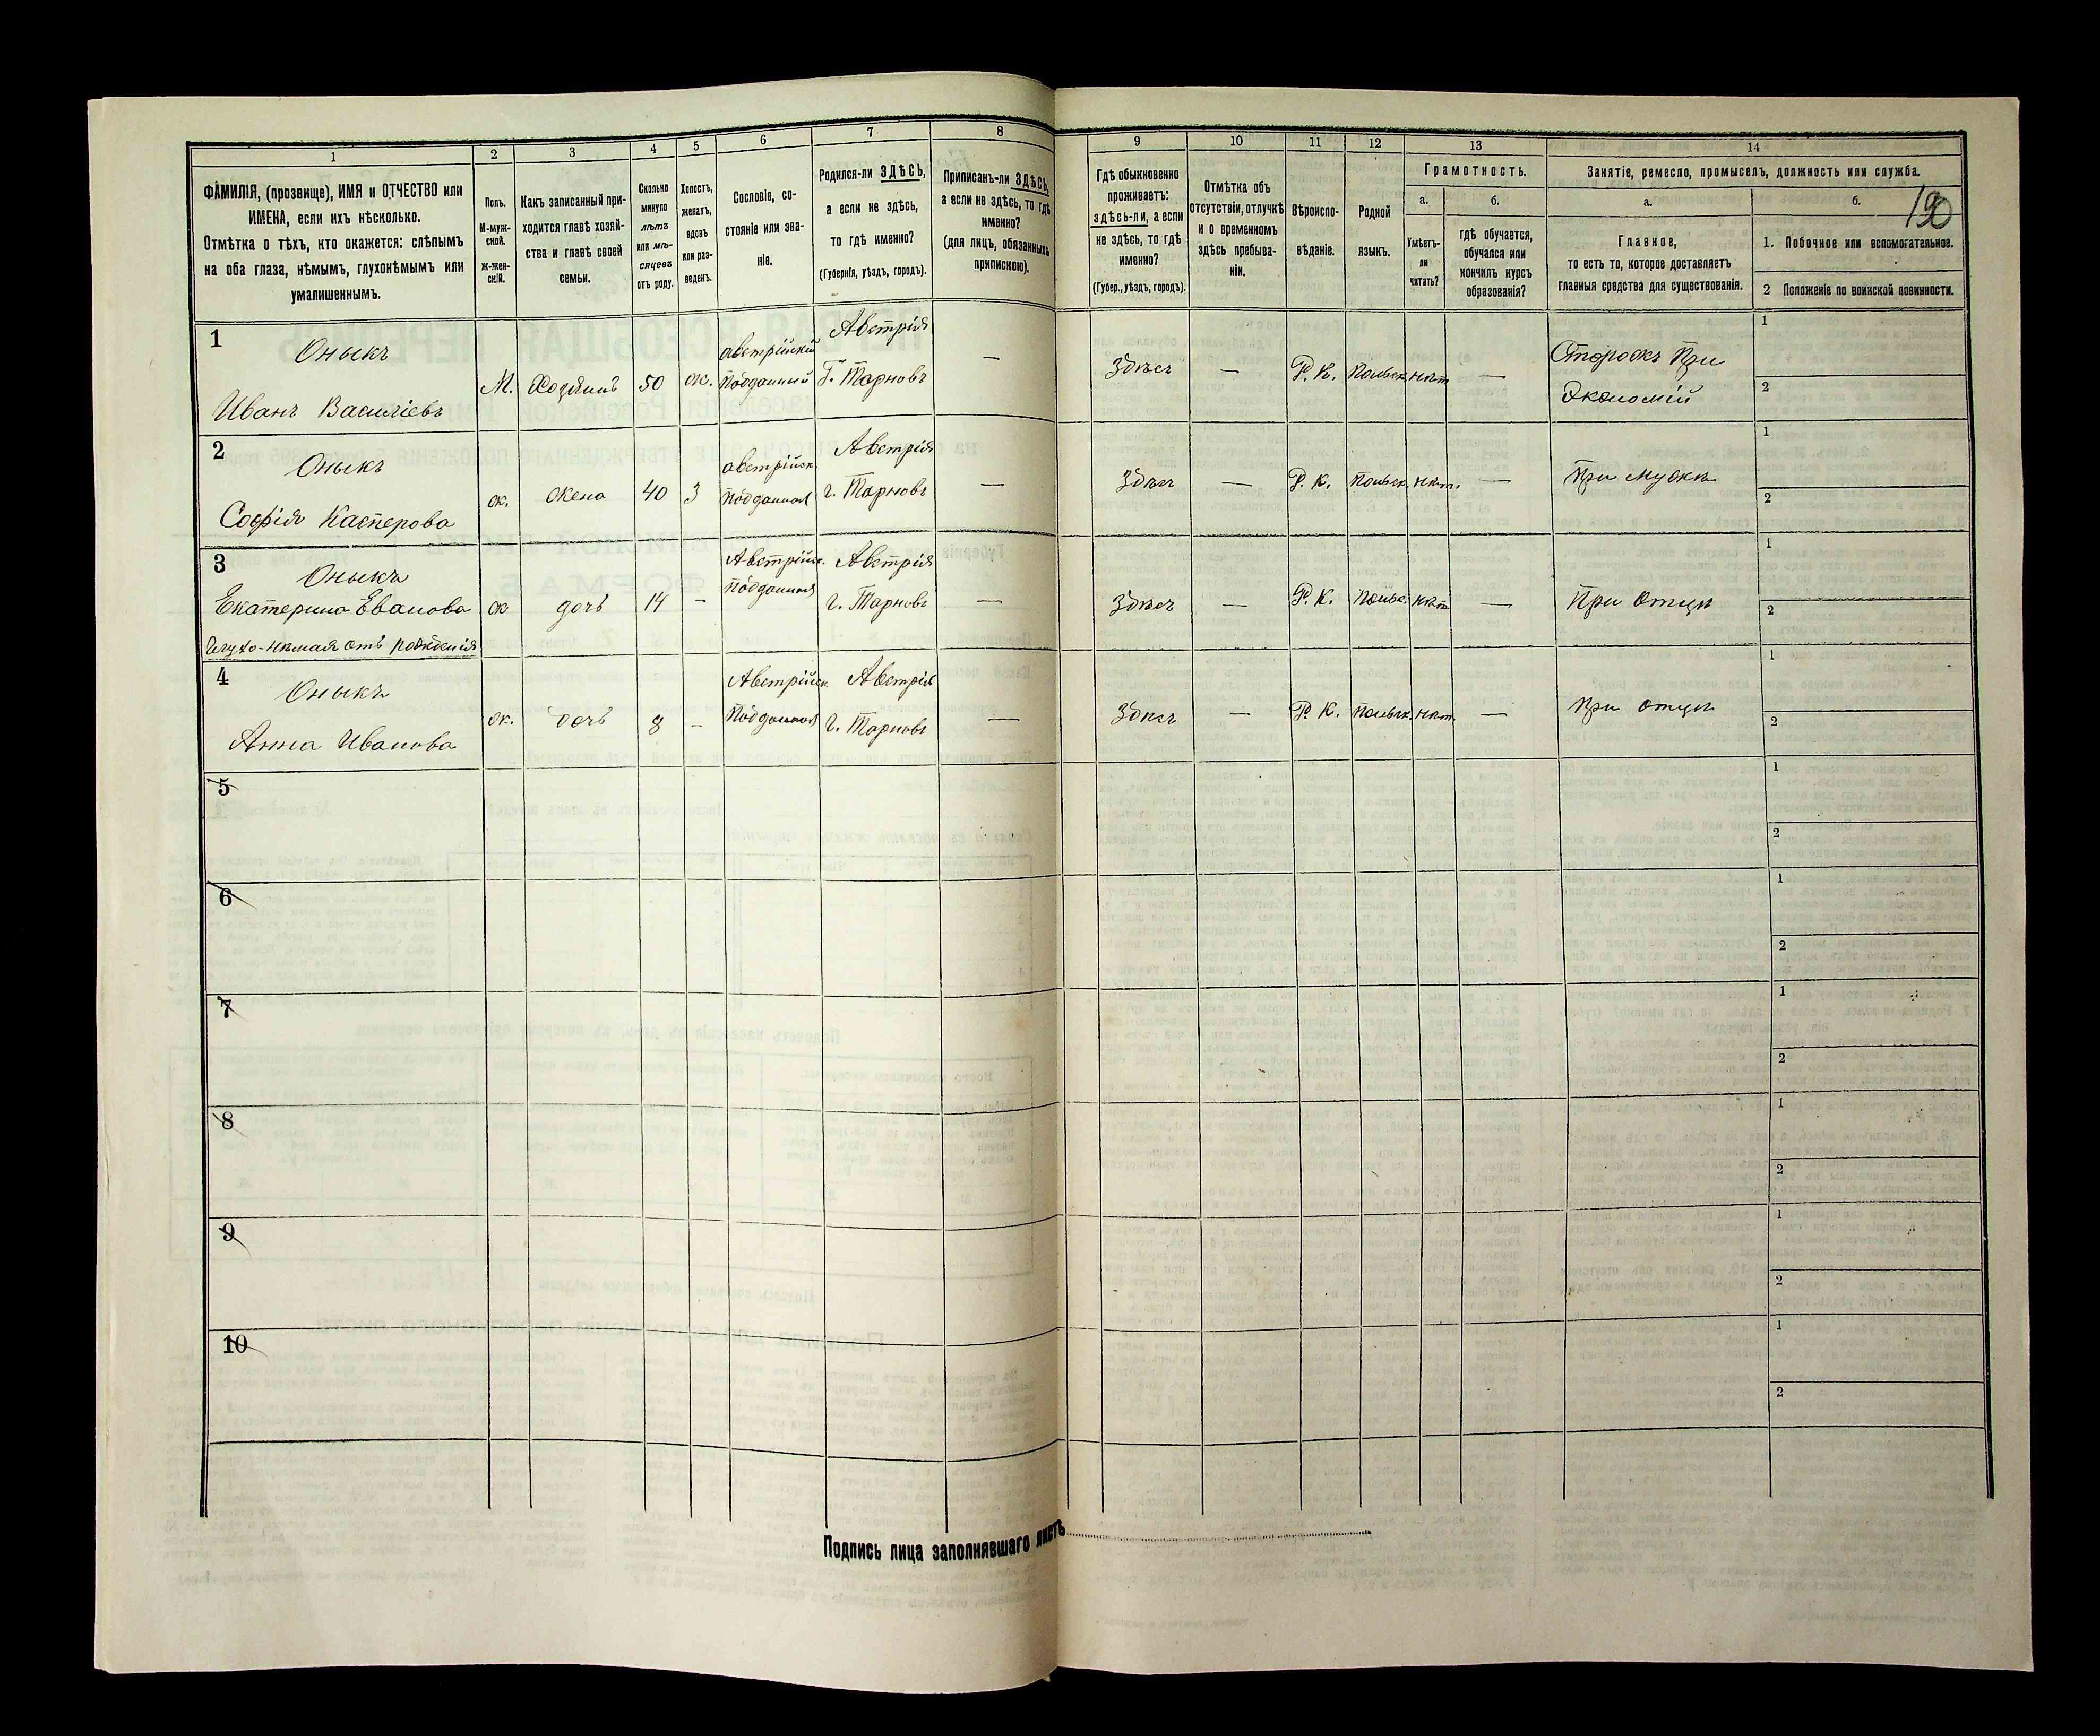 1 2 3 4 5 6 7 8
ФАМИЛІЯ, (прозвище), ИМЯ и ОТЧЕСТВО или
ИМЕНА, если ихъ нѣсколько.
Отмѣтка о тѣхъ, кто окажется: слѣпымъ
на оба глаза, нѣмымъ, глухонѣмымъ или
умалишеннымъ.
Полъ.
М-муж-
ской.
ж-жен-
скій.
Какъ записанный при-
ходится главѣ хозяй-
ства и главѣ своей
семьи.
Сколько
минуло
лѣтъ
или мѣ-
сяцевъ
отъ роду.
Холостъ,
женатъ,
вдовъ
или раз-
веденъ.
Сословіе, со-
стояніе или зва-
ніе.
Родился-ли ЗДѢСЬ,
а если не здѣсь,
то гдѣ именно?
(Губернія, уѣздъ, городъ).
Приписанъ-ли ЗДѢСЬ,
а если не здѣсь, то гдѣ
именно?
(для лицъ, обязанныхъ
припискою).
9 10 11 12 13 14
Гдѣ обыкновенно
проживаетъ:
здѣсь-ли, а если
не здѣсь, то гдѣ
именно?
(Губер., уѣздъ, городъ).
Отмѣтка объ
отсутствіи, отлучкѣ
и о временномъ
здѣсь пребыва-
ніи.
Вѣроиспо-
вѣданіе.
Родной
языкъ.
Грамотность.
а.
Умѣетъ-
ли
читать?
б.
Гдѣ обучается,
обучался или
кончилъ курсъ
образованія?
Занятіе, ремесло, промыселъ, должность или служба.
а.
Главное,
то есть то, которое доставляетъ
главныя средства для существованія.
б.
1. Побочное или вспомогательное.
2 Положеніе по воинской повинности.
1
Оныкъ
Иванъ Василіевъ
М.
Хозяинъ
50
ж.
австрійскій
подданный
Австрія
Г. Тарновъ
—
Здѣсь
—
Р. К.
Польск.
нѣт
—
Сторожъ При
Экономіи
1
2
2
Оныкъ
Софія Касперова
ж.
жена
40
З
австрійск.
подданная
Австрія
г. Тарновъ
—
Здѣсь
—
Р. К.
Польск.
нѣт.
—
При мужѣ
1
2
3
Оныкъ
Екатерина Евапова
Глухо-нѣмая отъ рождения
ж
дочь
14
—
Австрійск.
подданная
Австрія
г. Тарновъ
—
Здѣсь
—
Р. К.
Польс.
нѣт
—
При отцѣ
1
2
4
Оныкъ
Анна Иванова
ж.
дочь
8
—
Австрійск
подданная
Австрія
г. Тарновъ
—
Здѣсь
—
Р. К.
Польск.
нѣт.
—
При отцѣ
1
2
5
1
2
6
1
2
7
1
2
8
1
2
9
1
2
10
1
2
Подпись лица заполнявшаго листъ